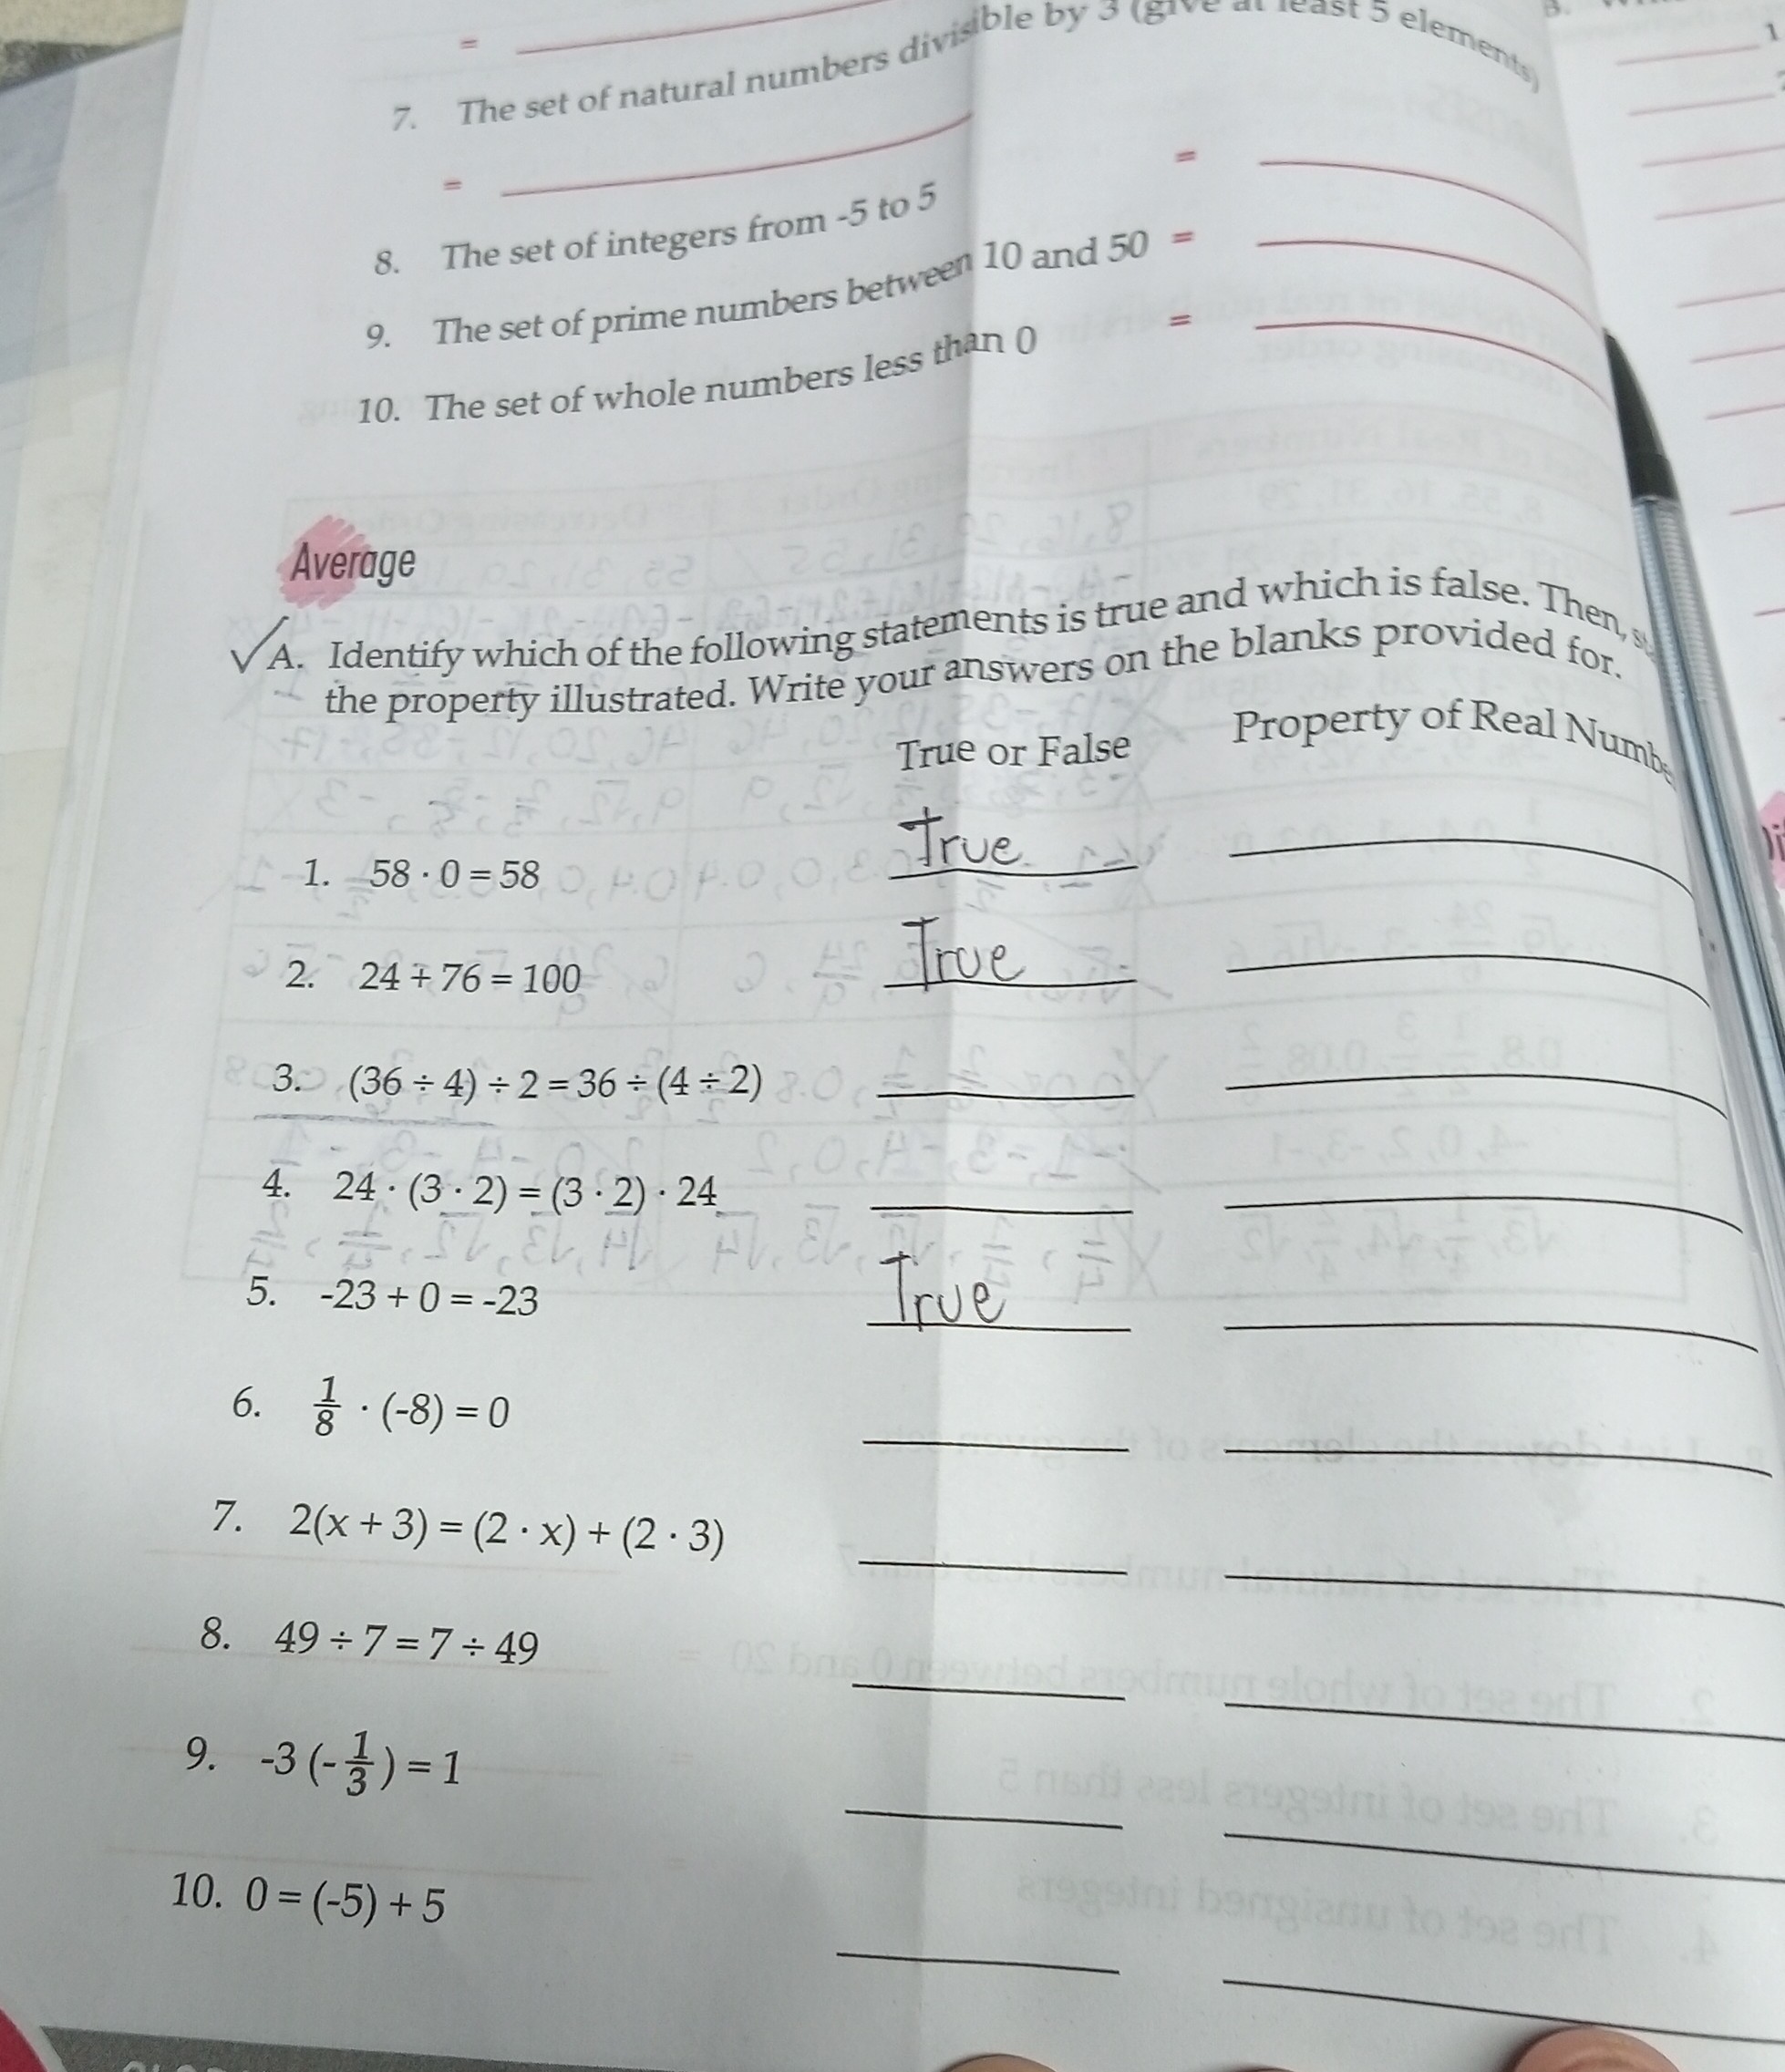 =
7. The set of natural numbers divisible by 3 (give at least 5 elements)
=
8. The set of integers from -5 to 5 =
9. The set of prime numbers between 10 and 50 =
10. The set of whole numbers less than 0 =
Average
A. Identify which of the following statements is true and which is false. Then,
the property illustrated. Write your answers on the blanks provided for.
True or False Property of Real Numbe
1. 58 · 0 = 58 True
2. 24 + 76 = 100 True
3. (36 ÷ 4) ÷ 2 = 36 ÷ (4 ÷ 2)
4. 24 · (3 · 2) = (3 · 2) · 24
5. -23 + 0 = -23 True
6. 1/8 · (-8) = 0
7. 2(x + 3) = (2 · x) + (2 · 3)
8. 49 ÷ 7 = 7 ÷ 49
9. -3 (-1/3) = 1
10. 0 = (-5) + 5